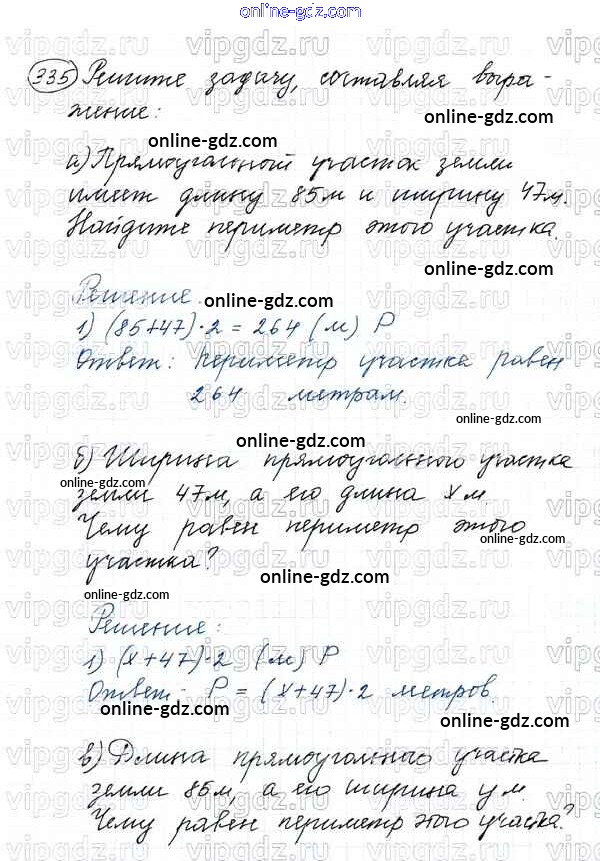 online-gdz.com
335 Решите задачу, составляя выра-
жение:
online-gdz.com
а) Прямоугольный участок земли
имеет длину 85м и ширину 47м.
Найдите периметр этого участка.
online-gdz.com
Решение
online-gdz.com
1) (85+47)·2 = 264 (м) P
Ответ: периметр участка равен
264 метрам.
online-gdz.com
online-gdz.com
б) Ширина прямоугольного участка
online-gdz.com
земли 47м, а его длина x м.
Чему равен периметр этого
участка?
online-gdz.com
Решение:
1) (x+47)·2 (м) P
Ответ: P = (x+47)·2 метров.
online-gdz.com
online-gdz.com
в) Длина прямоугольного участка
земли 85м, а его ширина у м.
online-gdz.com
Чему равен периметр этого участка?
vipgdz.ru